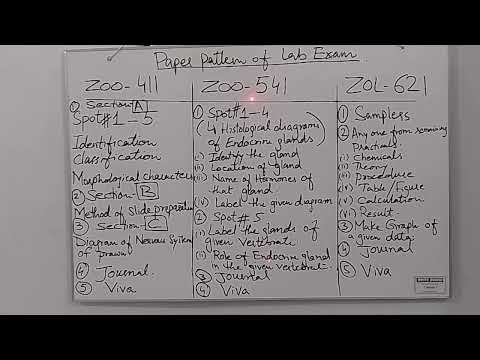 Paper Pattern of Lab Exam
ZOO-411
① Section A
Spot #1-5
Identification
Classification
Morphological characters
② Section-B
Method of Slide preparation
③ Section-C
Diagram of Nervous System
of prawn
④ Journal.
⑤ Viva
ZOO-541
① Spot #1-4
(4 Histological diagrams
of Endocrine glands)
(i) Identify the gland
(ii) Location of gland
(iii) Name of Hormones of
that gland
(iv) Label the given diagram
② Spot # 5
(i) Label the glands of
given Vertebrat
(ii) Role of Endocrine gland
in the given vertebrate.
③ Journal
④ Viva
ZOL-621
① Samples
② Any one from
Practicals.
(i) Chemicals
(ii) Theory
(iii) Procedure
(iv) Table/figure
(v) Calculation.
(vi) Result.
③ Make Graph of
a given data.
④ Journal
⑤ Viva